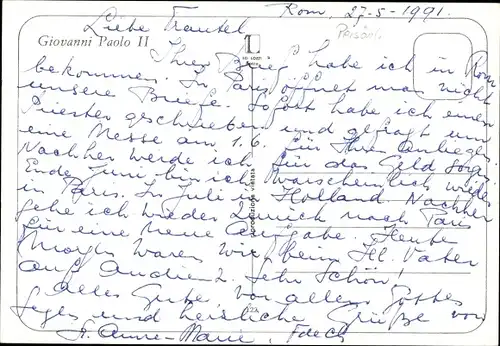 Rom, 27-5-1991.
Liebe Trautel
Giovanni Paolo II
Ihren Brief habe ich in Rom
bekommen. In Paris öffnet man nicht
unsere Briefe. Sofort habe ich einen
Priester geschrieben und gefragt um
eine Messe am 1.6. für Ihren Anliegen.
Nachher werde ich für das Geld sorgen
Ende Juni bin ich warscheinlich wieder
in Paris. In Juli in Holland. Nachher
gehe ich wieder zurück nach Paris
für eine neue Aufgabe. Heute
Morgen waren wir beim Hl. Vater
auf Audienz. Sehr Schön!
Alles Gute vor allem Gottes
Segen und herzliche Grüße von
Sr. Anne-Marie,